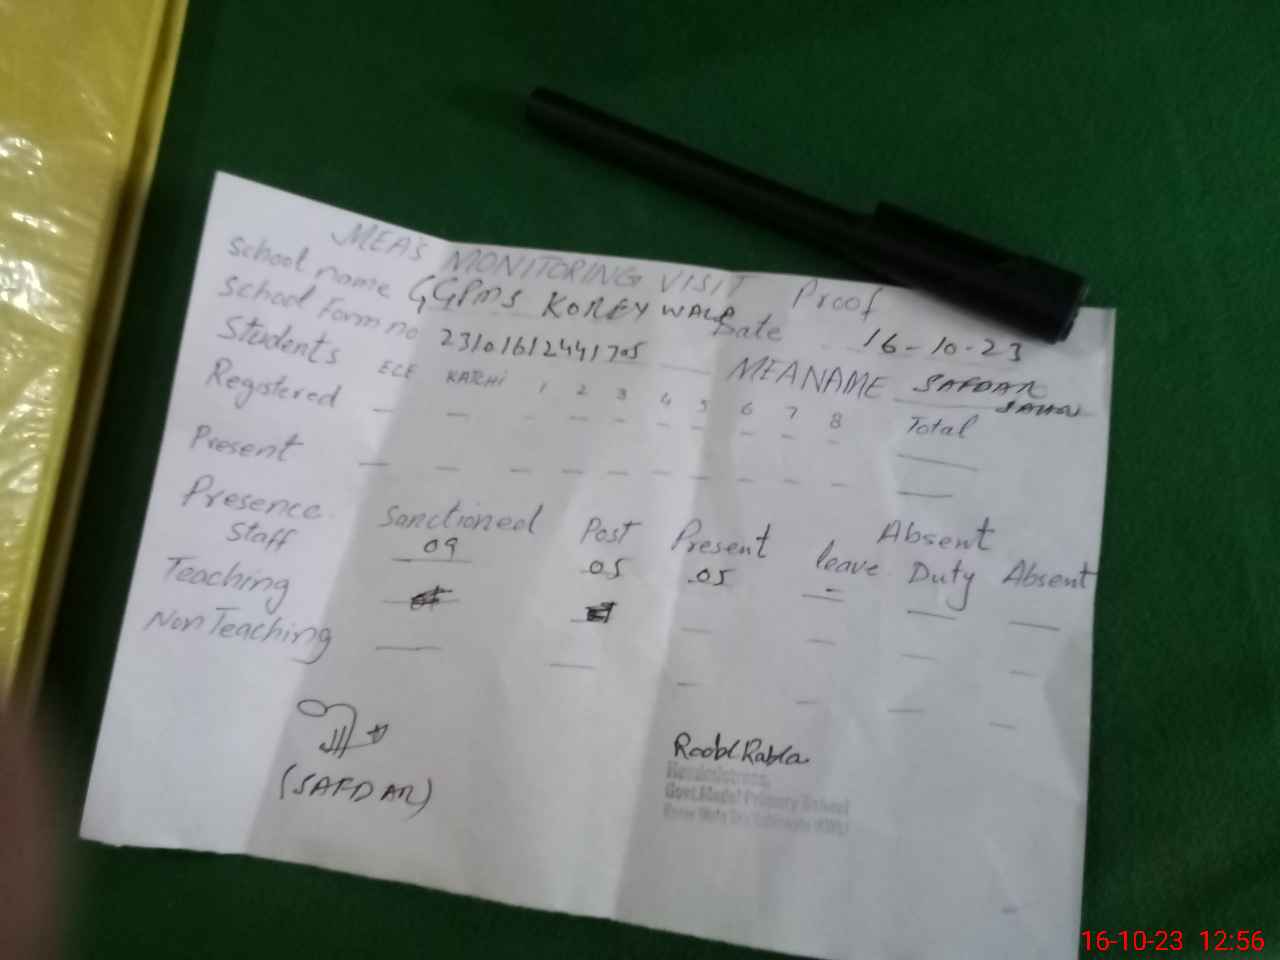 MEAS MONITORING VISIT Proof
School name GGPMS KOREY WALA Date 16-10-23
School Form no 23101612441705 MEANAME SAFDAR
Students ECE KATCHI 1 2 3 4 5 6 7 8 Total
Registered
Present
Presence Sanctioned Post Present leave Absent Duty Absent
Staff 09 05 05
Teaching
Non Teaching
(SAFDAR)
Headmistress,
Govt. Model Primary School
16-10-23 12:56